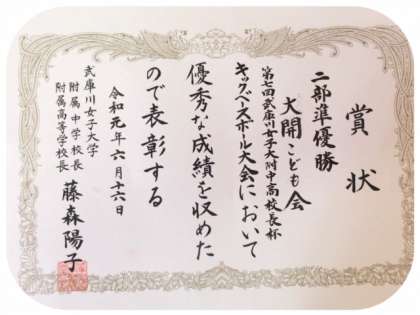 賞状
二部準優勝
大開こども会
第七回武庫川女子大附中高校長杯
キックベースボール大会において
優秀な成績を収めた
ので表彰する
令和元年六月十六日
武庫川女子大学
附属中学校長
附属高等学校長
藤森陽子